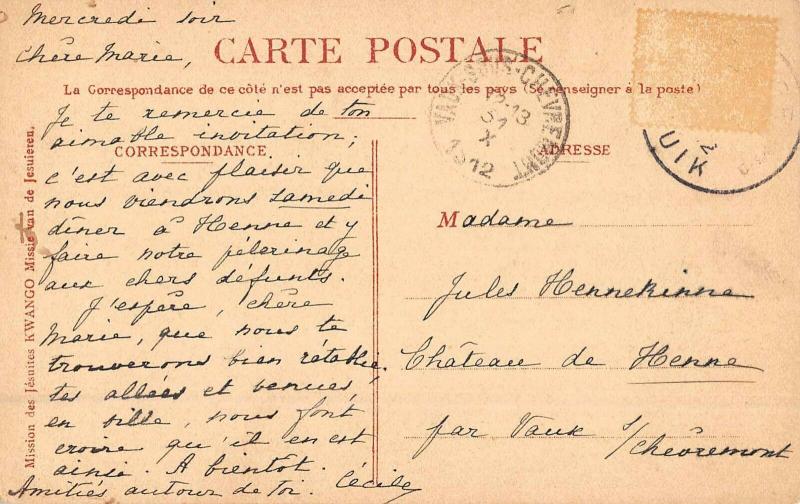 Mercredi soir
Chère Marie,
CARTE POSTALE
La Correspondance de ce côté n'est pas acceptée par tous les pays (Se renseigner à la poste)
Je te remercie de ton
aimable invitation;
CORRESPONDANCE
c'est avec plaisir que
nous viendrons samedi
dîner à Henne et y
faire notre pèlerinage
aux chers défunts.
J'espère, chère
Marie, que nous te
trouverons bien rétablie.
tes allées et venues,
en ville, nous font
croire qu'il en est
ainsi. A bientôt.
Amitiés autour de toi. Cécile
Mission des Jésuites KWANGO Missie van de Jesuieten.
VAUX-SOUS-CHEVREMONT
12-13
31
X
1912
UIK
2
ADRESSE
Madame
Jules Hennekinne
Château de Henne
par Vaux s/Chèvremont